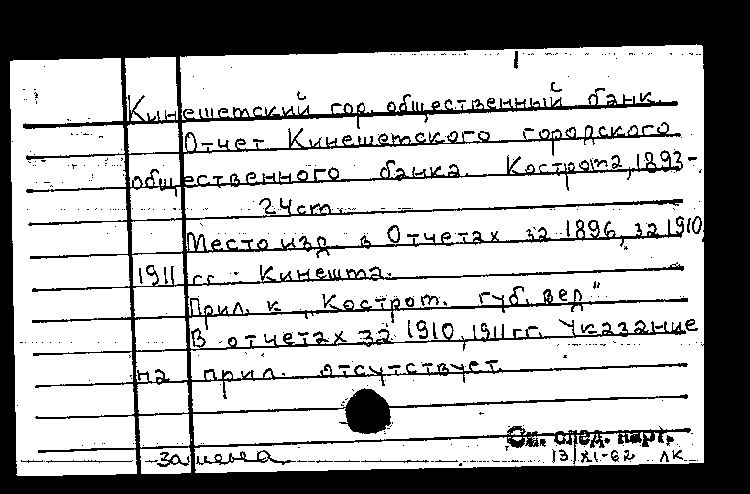 Кинешетский гор. общественный банк.
Отчет Кинешетского городского
общественного банка. Кострота, 1893-.
24 ст.
Место изд. в Отчетах за 1896, за 1910,
1911 гг. - Кинешта.
Прил. к „Костром. губ. вед."
В отчетах за 1910, 1911 гг. Указание
на прил. отсутствует.
См. след. карт.
замена 13/XI-62 ЛК